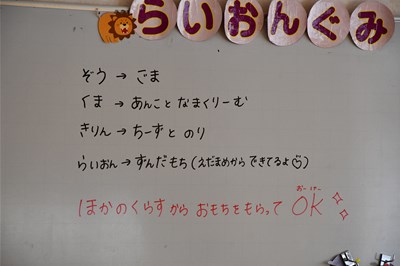 らいおんぐみ
ぞう → ごま
くま → あんこと なまくりーむ
きりん → ちーずと のり
らいおん → ずんだもち(えだまめから できてるよ)
おーけー
ほかのくらすから おもちをもらって OK